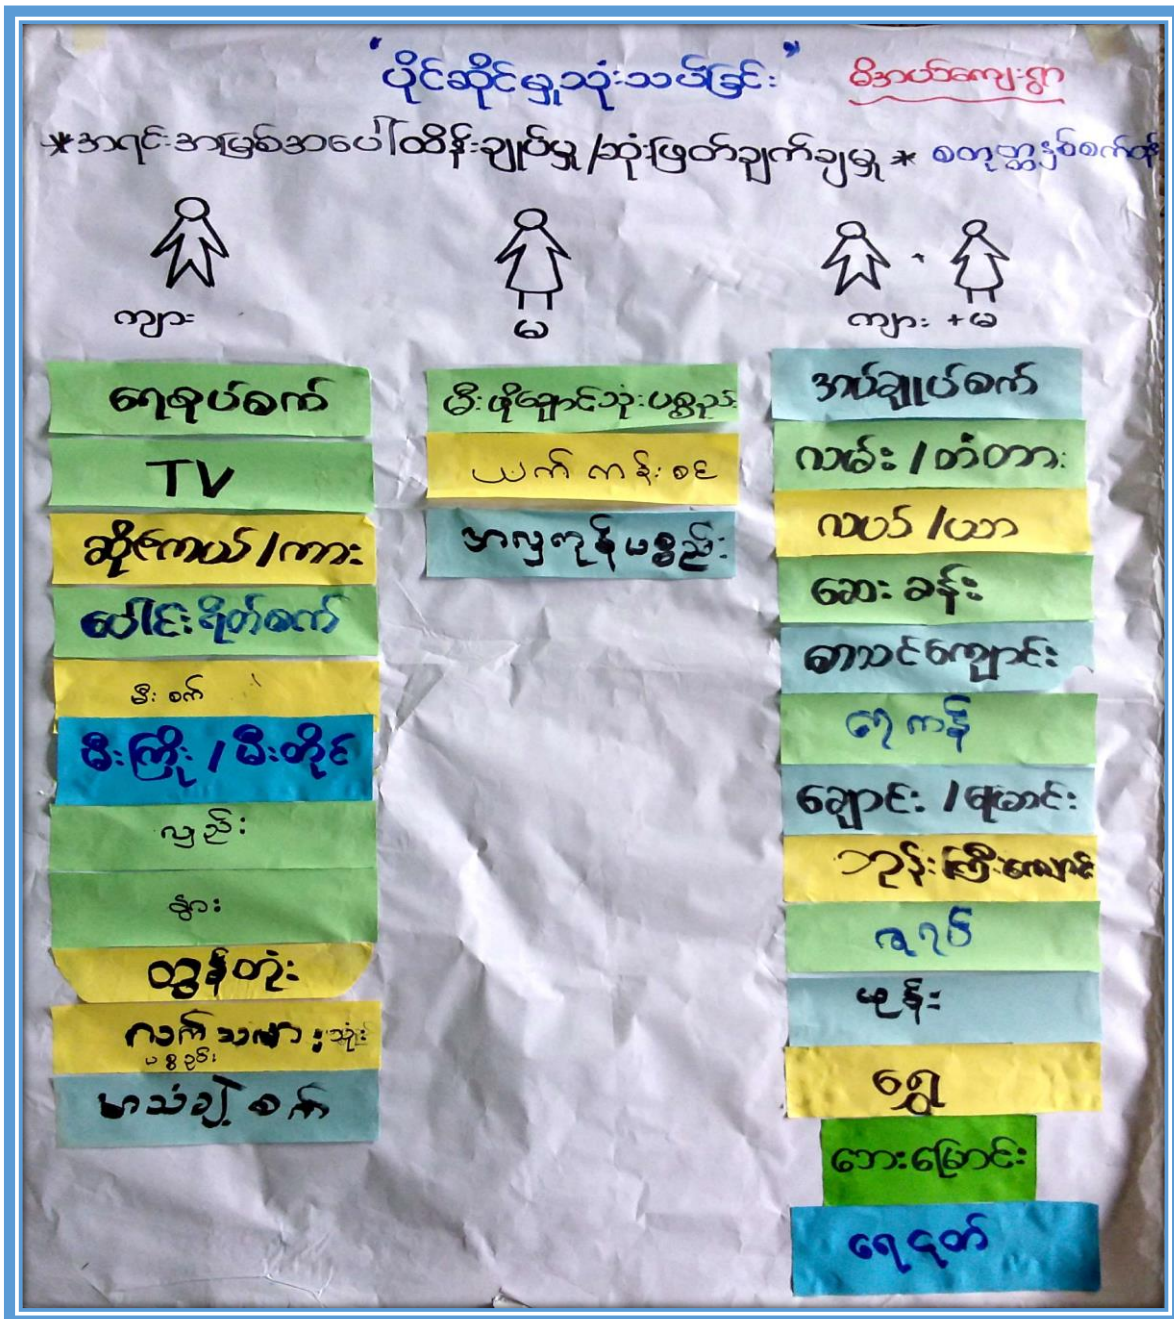 "ပိုင်ဆိုင်မှုသုံးသပ်ခြင်း"
မိအယ်ကျေးရွာ
*အရင်းအမြစ်အပေါ်ထိန်းချုပ်မှု/ဆုံးဖြတ်ချက်ချမှု*
ကျား
ရေစုပ်စက်
TV
ဆိုင်ကယ်/ကား
ပေါင်းရိတ်စက်
မီးစက်
မီးကြိုး/မီးတိုင်
လှည်း
နွား
ထွန်တုံး
လက်သမားသုံး
ပစ္စည်း
အသံချဲ့စက်
မ
မီးဖိုချောင်သုံးပစ္စည်း
ယက်ကန်းစင်
အလှကုန်ပစ္စည်း
ကျား + မ
အပ်ချုပ်စက်
လမ်း/တံတား
လယ်/ယာ
ဆေးခန်း
စာသင်ကျောင်း
ရေကန်
ချောင်း/မြောင်း
ဘုန်းကြီးကျောင်း
ဇရပ်
ဖုန်း
ရွှေ
ဘေးမြောင်း
ရေငုတ်